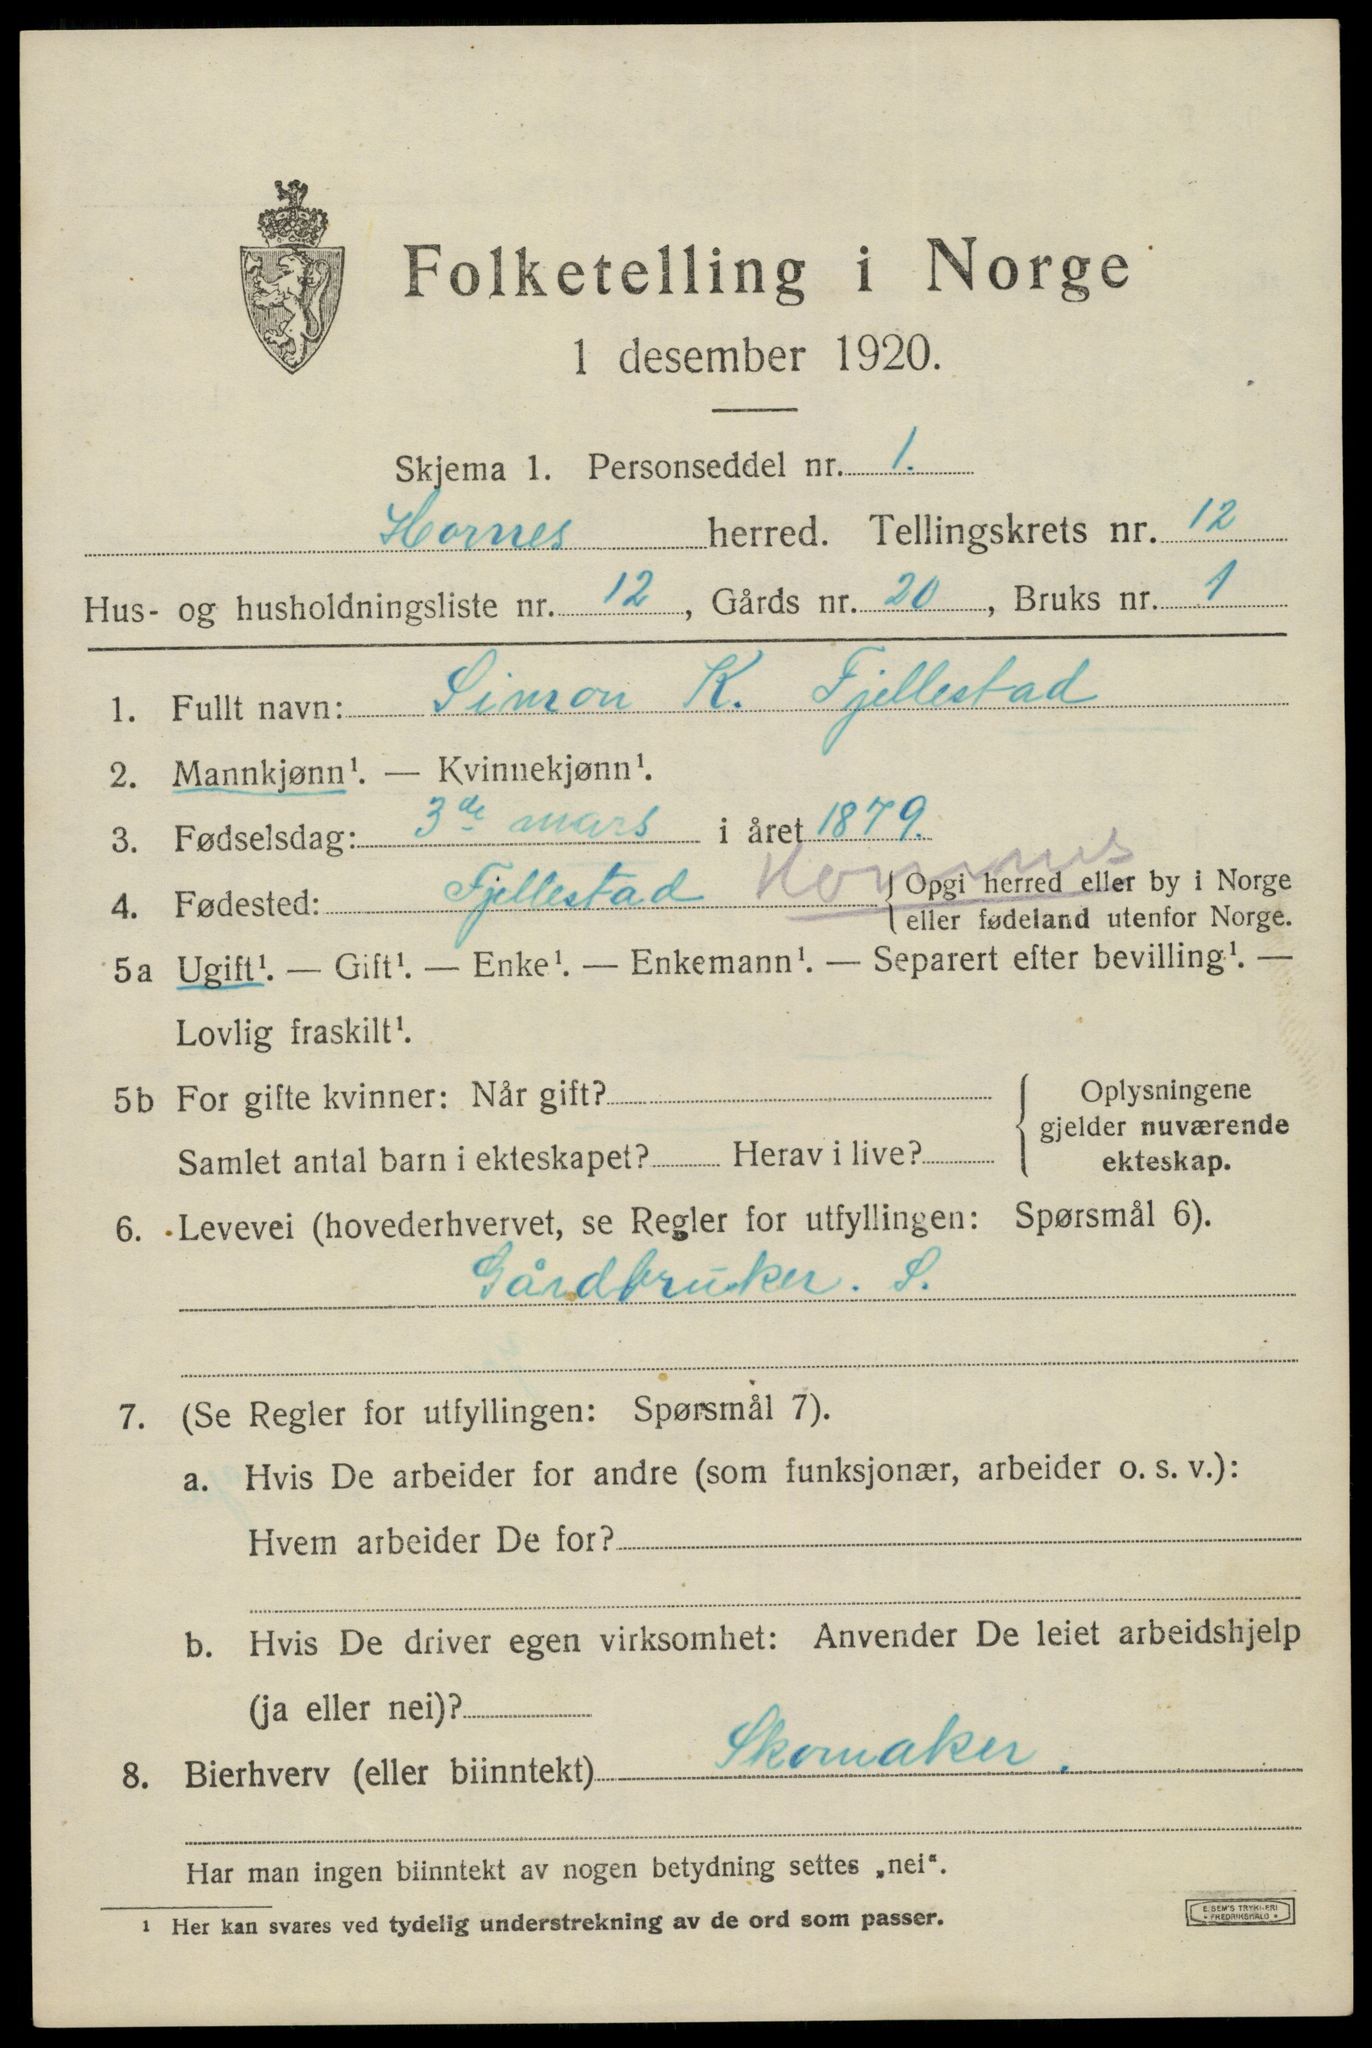 Folketelling i Norge
1 desember 1920.
Skjema 1. Personseddel nr. 1.
Hornes herred. Tellingskrets nr. 12
Hus- og husholdningsliste nr. 12, Gårds nr. 20, Bruks nr. 1
1. Fullt navn: Simon K. Fjellestad
2. Mannkjønn¹. — Kvinnekjønn¹.
3. Fødselsdag: 3de mars i året 1879.
4. Fødested: Fjellestad Hornnes { Opgi herred eller by i Norge
eller fødeland utenfor Norge.
5a Ugift¹. — Gift¹. — Enke¹. — Enkemann¹. — Separert efter bevilling¹. —
Lovlig fraskilt¹.
5b For gifte kvinner: Når gift?
Samlet antal barn i ekteskapet? Herav i live?
{ Oplysningene
gjelder nuværende
ekteskap.
6. Levevei (hovederhvervet, se Regler for utfyllingen: Spørsmål 6).
Gårdbruker. S.
7. (Se Regler for utfyllingen: Spørsmål 7).
a. Hvis De arbeider for andre (som funksjonær, arbeider o. s. v.):
Hvem arbeider De for?
b. Hvis De driver egen virksomhet: Anvender De leiet arbeidshjelp
(ja eller nei)?
8. Bierhverv (eller biinntekt) Skomaker.
Har man ingen biinntekt av nogen betydning settes „nei“.
¹ Her kan svares ved tydelig understrekning av de ord som passer.
E. SEM'S TRYKKERI
• FREDRIKSHALD •